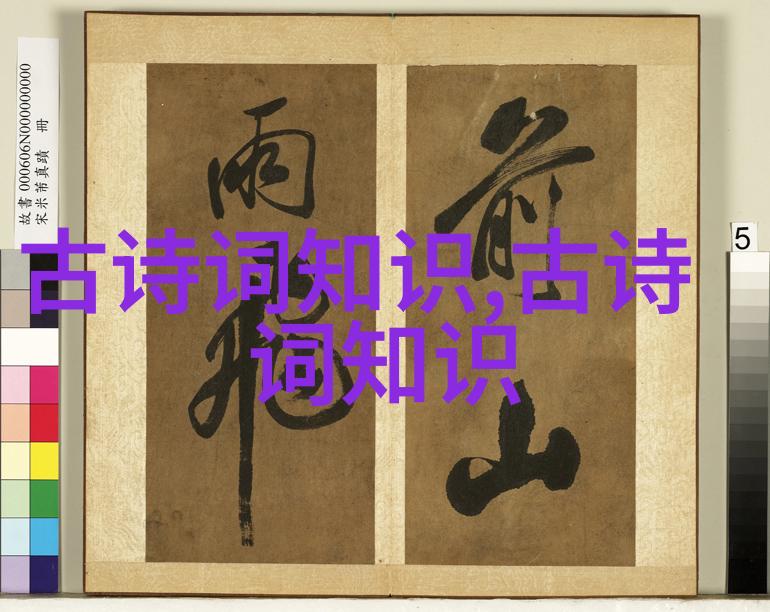 故書 000606N000000000
宋米芾真蹟 冊
前
山
雨
古诗词知识,古诗
词知识
5